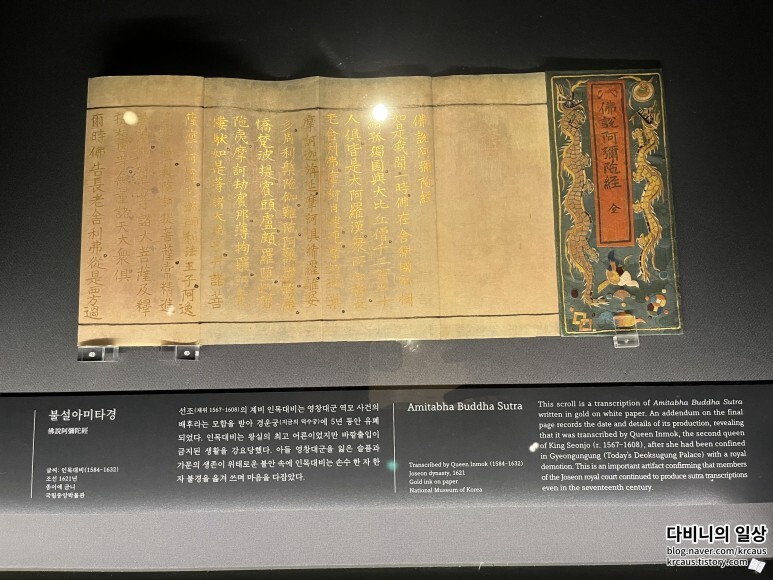 佛說阿彌陀經 全
佛說阿彌陀經
如是我聞一時佛在舍衛國
孤獨園與大比丘僧千二百五十
人俱皆是大阿羅漢衆所
老舍利弗摩訶目
摩訶迦旃延摩訶俱絺羅離婆
多周利槃陀伽難陀阿難陀羅
憍梵波提賓頭盧頗羅墮
陀夷摩訶劫賓那薄拘羅
樓馱如是等諸大弟子 諸菩
薩摩訶 利法王子阿逸
提菩薩常精進
諸大菩薩及釋
提桓因等無量諸天大衆俱
爾時佛告長老舍利弗從是西方過
불설아미타경
佛說阿彌陀經
글씨: 인목대비(1584-1632)
조선 1621년
종이에 금니
국립중앙박물관
선조(재위 1567-1608)의 계비 인목대비는 영창대군 역모 사건의
배후라는 모함을 받아 경운궁(지금의 덕수궁)에 5년 동안 유폐
되었다. 인목대비는 왕실의 최고 어른이었지만 바깥출입이
금지된 생활을 강요당했다. 아들 영창대군을 잃은 슬픔과
가문의 생존이 위태로운 불안 속에 인목대비는 손수 한 자 한
자 불경을 옮겨 쓰며 마음을 다잡았다.
Amitabha Buddha Sutra
Transcribed by Queen Inmok (1584-1632)
Joseon dynasty, 1621
Gold ink on paper
National Museum of Korea
This scroll is a transcription of Amitabha Buddha Sutra
written in gold on white paper. An addendum on the final
page records the date and details of its production, revealing
that it was transcribed by Queen Inmok, the second queen
of King Seonjo (r. 1567–1608), after she had been confined
in Gyeongungung (Today's Deoksugung Palace) with a royal
demotion. This is an important artifact confirming that members
of the Joseon royal court continued to produce sutra transcriptions
even in the seventeenth century.
다비니의 일상
blog.naver.com/krcaus
krcaus.tistory.com